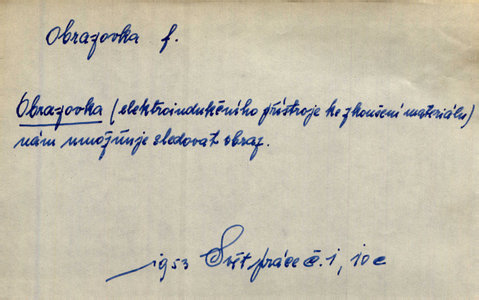 Obrazovka f.
Obrazovka (elektroindukčního přístroje ke zkoušení materiálu)
nám umožňuje sledovat obraz.
1953 Svět práce č. 1, 10c